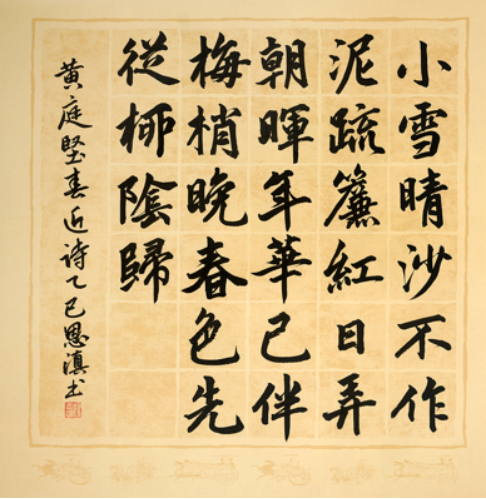 小雪晴沙不作
泥疏簾紅日弄
朝暉年華已伴
梅梢晚春色先
從柳陰歸
黄庭堅春近诗乙巳恩滇书